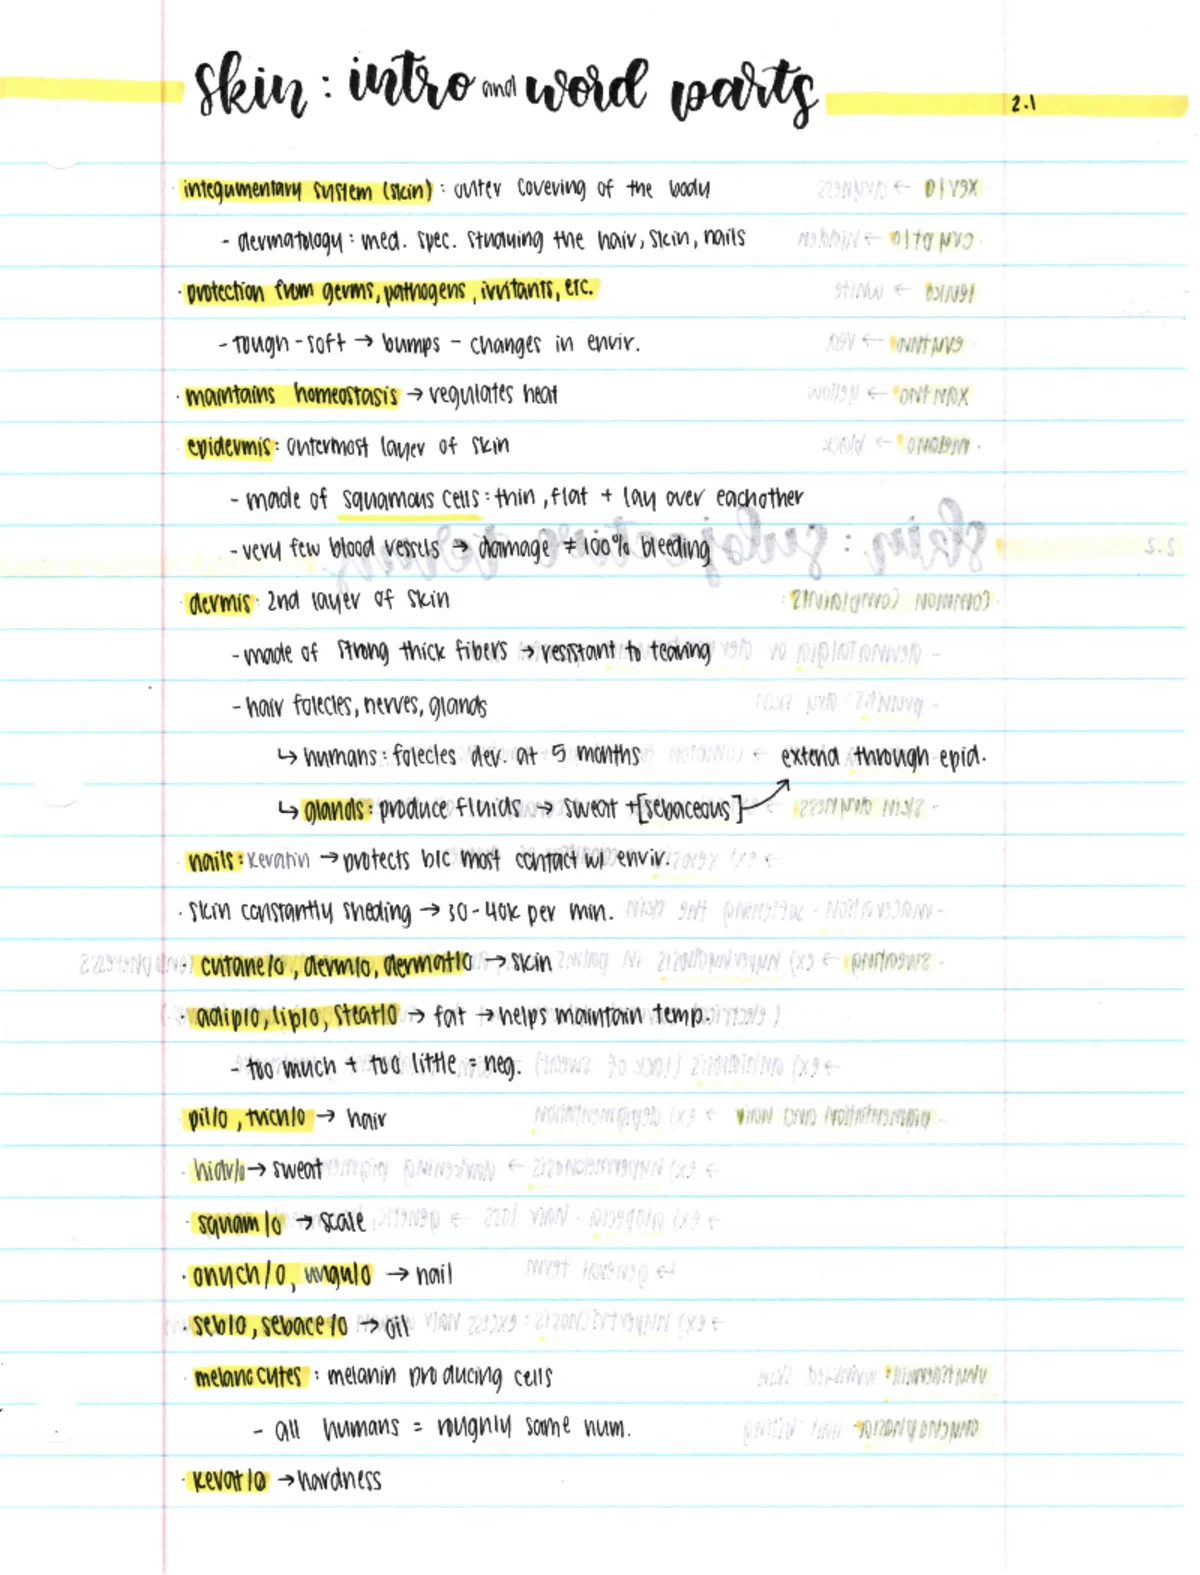 skin: intro and word parts
2.1
· integumentary system (skin): outer covering of the body
- dermatology: med. spec. studying the hair, skin, nails
· protection from germs, pathogens, irritants, etc.
- tough-soft → bumps - changes in envir.
· maintains homeostasis → regulates heat
· epidermis: outermost layer of skin
- made of squamous cells: thin, flat + lay over eachother
- very few blood vessels → damage ≠ 100% bleeding
· dermis: 2nd layer of skin
- made of strong thick fibers → resistant to tearing
- hair folecles, nerves, glands
↳ humans: folecles dev. at 5 months
extend through epid.
↳ glands: produce fluids → sweat + [sebaceous]
· nails: keratin → protects b/c most contact w/ envir.
· skin constantly sheding → 30-40k per min.
· cutane/o, derm/o, dermat/o → skin
· adip/o, lip/o, steat/o → fat → helps maintain temp.
- too much + too little = neg.
· pil/o, trich/o → hair
· hidr/o → sweat
· squam/o → scale
· onych/o, ungu/o → nail
· seb/o, sebace/o → oil
· melanocytes: melanin producing cells
- all humans = roughly same num.
· kerat/o → hardness